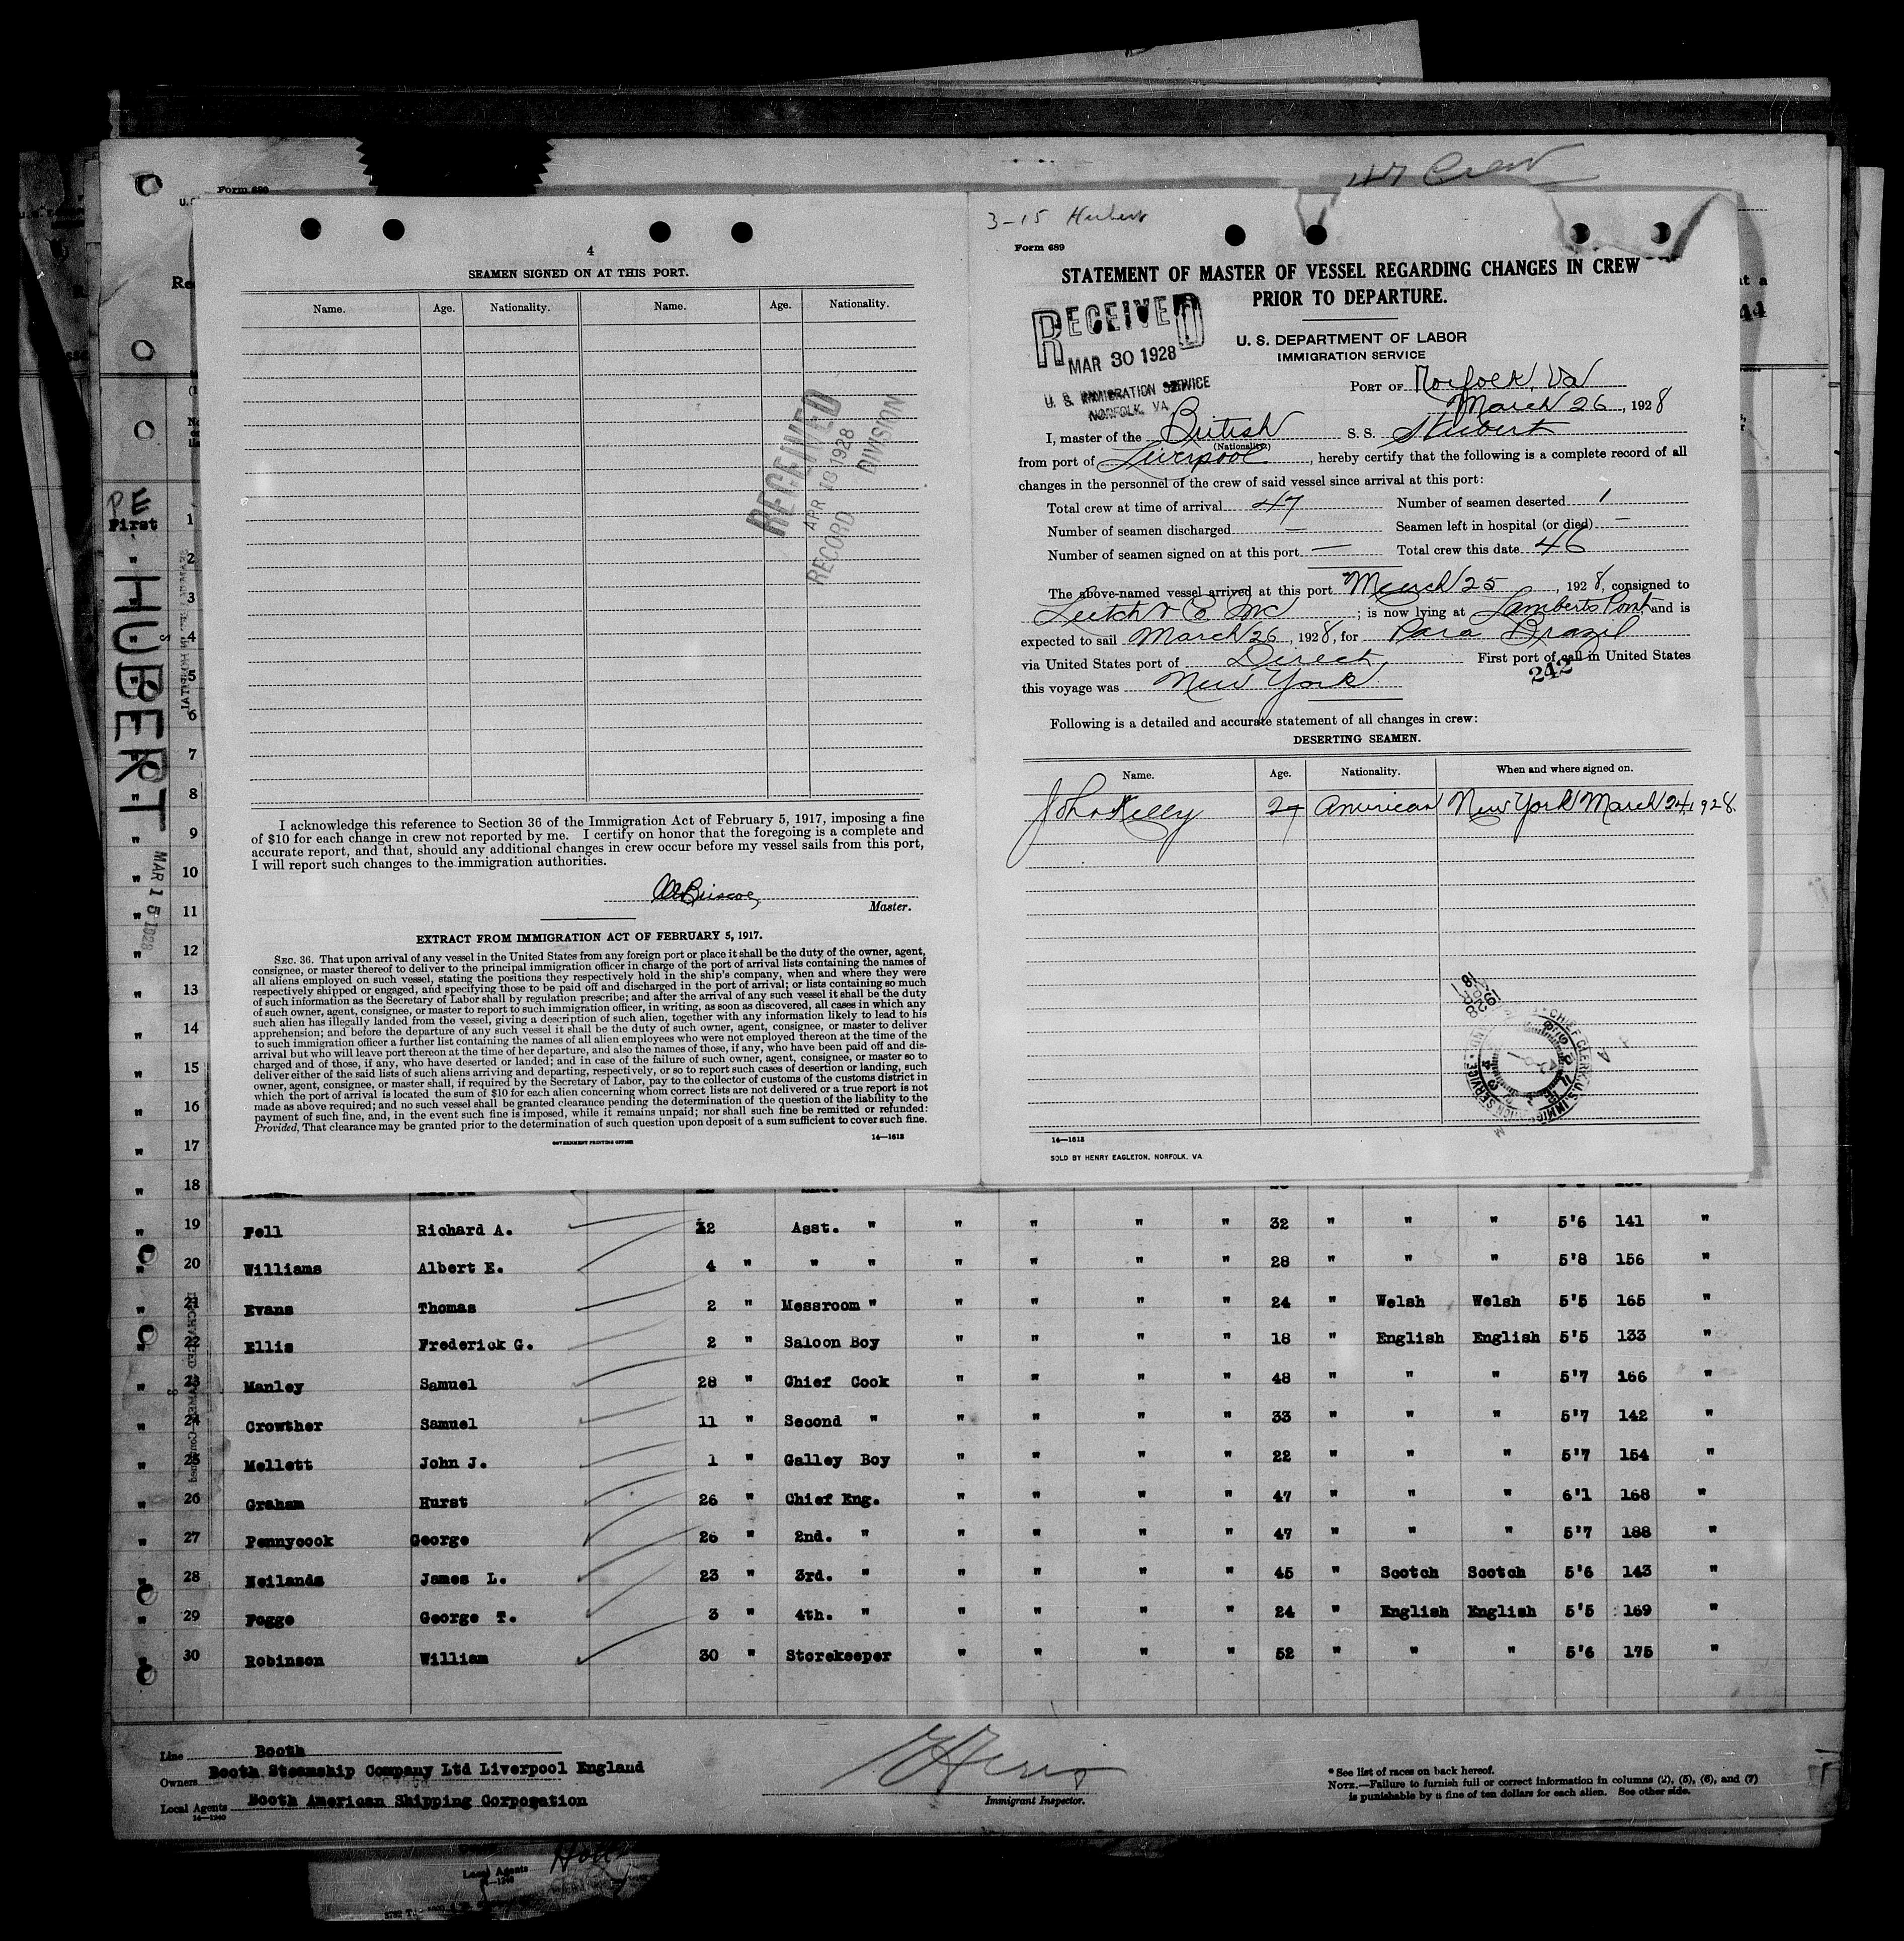 47 Crew
Form 689
4
SEAMEN SIGNED ON AT THIS PORT.
Name. Age. Nationality. Name. Age. Nationality.
RECEIVED
APR 18 1928
RECORD DIVISION
I acknowledge this reference to Section 36 of the Immigration Act of February 5, 1917, imposing a fine
of $10 for each change in crew not reported by me. I certify on honor that the foregoing is a complete and
accurate report, and that, should any additional changes in crew occur before my vessel sails from this port,
I will report such changes to the immigration authorities.
Briscoe
Master.
EXTRACT FROM IMMIGRATION ACT OF FEBRUARY 5, 1917.
SEC. 36. That upon arrival of any vessel in the United States from any foreign port or place it shall be the duty of the owner, agent,
consignee, or master thereof to deliver to the principal immigration officer in charge of the port of arrival lists containing the names of
all aliens employed on such vessel, stating the positions they respectively hold in the ship's company, when and where they were
respectively shipped or engaged, and specifying those to be paid off and discharged in the port of arrival; or lists containing so much
of such information as the Secretary of Labor shall by regulation prescribe; and after the arrival of any such vessel it shall be the duty
of such owner, agent, consignee, or master to report to such immigration officer, in writing, as soon as discovered, all cases in which any
such alien has illegally landed from the vessel, giving a description of such alien, together with any information likely to lead to his
apprehension; and before the departure of any such vessel it shall be the duty of such owner, agent, consignee, or master to deliver
to such immigration officer a further list containing the names of all alien employees who were not employed thereon at the time of the
arrival but who will leave port thereon at the time of her departure, and also the names of those, if any, who have been paid off and dis-
charged and of those, if any, who have deserted or landed; and in case of the failure of such owner, agent, consignee, or master so to
deliver either of the said lists of such aliens arriving and departing, respectively, or so to report such cases of desertion or landing, such
owner, agent, consignee, or master shall, if required by the Secretary of Labor, pay to the collector of customs of the customs district in
which the port of arrival is located the sum of $10 for each alien concerning whom correct lists are not delivered or a true report is not
made as above required; and no vessel shall be granted clearance pending the determination of the question of the liability to the
payment of such fine, and, in the event such fine is imposed, while it remains unpaid; nor shall such fine be remitted or refunded:
Provided, That clearance may be granted prior to the determination of such question upon deposit of a sum sufficient to cover such fine.
GOVERNMENT PRINTING OFFICE 14—1612
3-15 Hubert
Form 689
STATEMENT OF MASTER OF VESSEL REGARDING CHANGES IN CREW
PRIOR TO DEPARTURE.
RECEIVED
MAR 30 1928
U. S. IMMIGRATION SERVICE
NORFOLK, VA
U. S. DEPARTMENT OF LABOR
IMMIGRATION SERVICE
PORT OF Norfolk, Va
March 26, 1928
I, master of the British S. S. Hubert
(Nationality)
from port of Liverpool, hereby certify that the following is a complete record of all
changes in the personnel of the crew of said vessel since arrival at this port:
Total crew at time of arrival 47 Number of seamen deserted 1
Number of seamen discharged — Seamen left in hospital (or died) —
Number of seamen signed on at this port — Total crew this date 46
The above-named vessel arrived at this port March 25, 1928, consigned to
Leitch & Co Inc; is now lying at Lamberts Point and is
expected to sail March 26, 1928, for Para Brazil
via United States port of Direct First port of call in United States
242
this voyage was New York
Following is a detailed and accurate statement of all changes in crew:
DESERTING SEAMEN.
Name. Age. Nationality. When and where signed on.
John Kelly 27 American New York March 24, 1928.
14—1612
SOLD BY HENRY EAGLETON, NORFOLK, VA.
PE
First
HUBERT
MAR 15 1928
1
2
3
4
5
6
7
8
9
10
11
12
13
14
15
16
17
18
" 19 Fell Richard A. 12 Asst. " " " " " 32 " " " 5'6 141 "
" 20 Williams Albert E. 4 " " " " " " " 28 " " " 5'8 156 "
" 21 Evans Thomas 2 " Messroom " " " " " 24 " Welsh Welsh 5'5 165 "
" 22 Ellis Frederick G. 2 " Saloon Boy " " " " 18 " English English 5'5 133 "
" 23 Manley Samuel 28 " Chief Cook " " " " 48 " " " 5'7 166 "
" 24 Crowther Samuel 11 " Second " " " " " 33 " " " 5'7 142 "
" 25 Mellett John J. 1 " Galley Boy " " " " 22 " " " 5'7 154 "
" 26 Graham Hurst 26 " Chief Eng. " " " " 47 " " " 6'1 168 "
" 27 Pennycook George 26 " 2nd. " " " " " 47 " " " 5'7 188 "
" 28 Neilands James L. 23 " 3rd. " " " " " 45 " Scotch Scotch 5'6 143 "
" 29 Fogge George T. 3 " 4th. " " " " " 24 " English English 5'5 169 "
" 30 Robinson William 30 " Storekeeper " " " " 52 " " " 5'6 175 "
Line Booth
Owners Booth Steamship Company Ltd Liverpool England
Local Agents Booth American Shipping Corporation
14—1240
Immigrant Inspector.
* See list of races on back hereof.
NOTE.—Failure to furnish full or correct information in columns (2), (5), (6), and (7)
is punishable by a fine of ten dollars for each alien. See other side.
Local Agents
14—1240